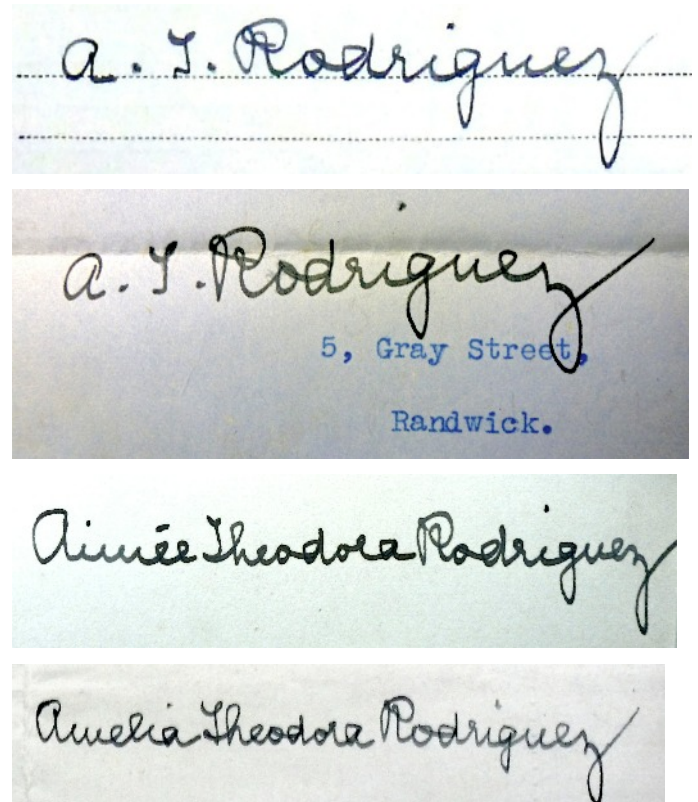 A. T. Rodriguez
A. T. Rodriguez
5, Gray Street,
Randwick.
Aimée Theodora Rodriguez
Amelia Theodora Rodriguez